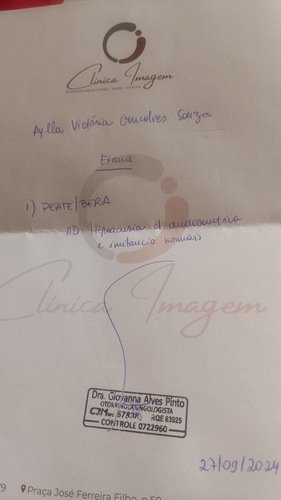 Clínica Imagem
Aylla Victória Goncalves Souza
Exame
1) PEATE/BERA
AD: Hipoacusia c/ audiometria
e imitancio normais
Clínica Imagem
Dra. Giovanna Alves Pinto
OTORRINOLARINGOLOGISTA
CRM RQE 63925
CONTROLE 0722960
27/09/2024
Praça José Ferreira Filho, n 50